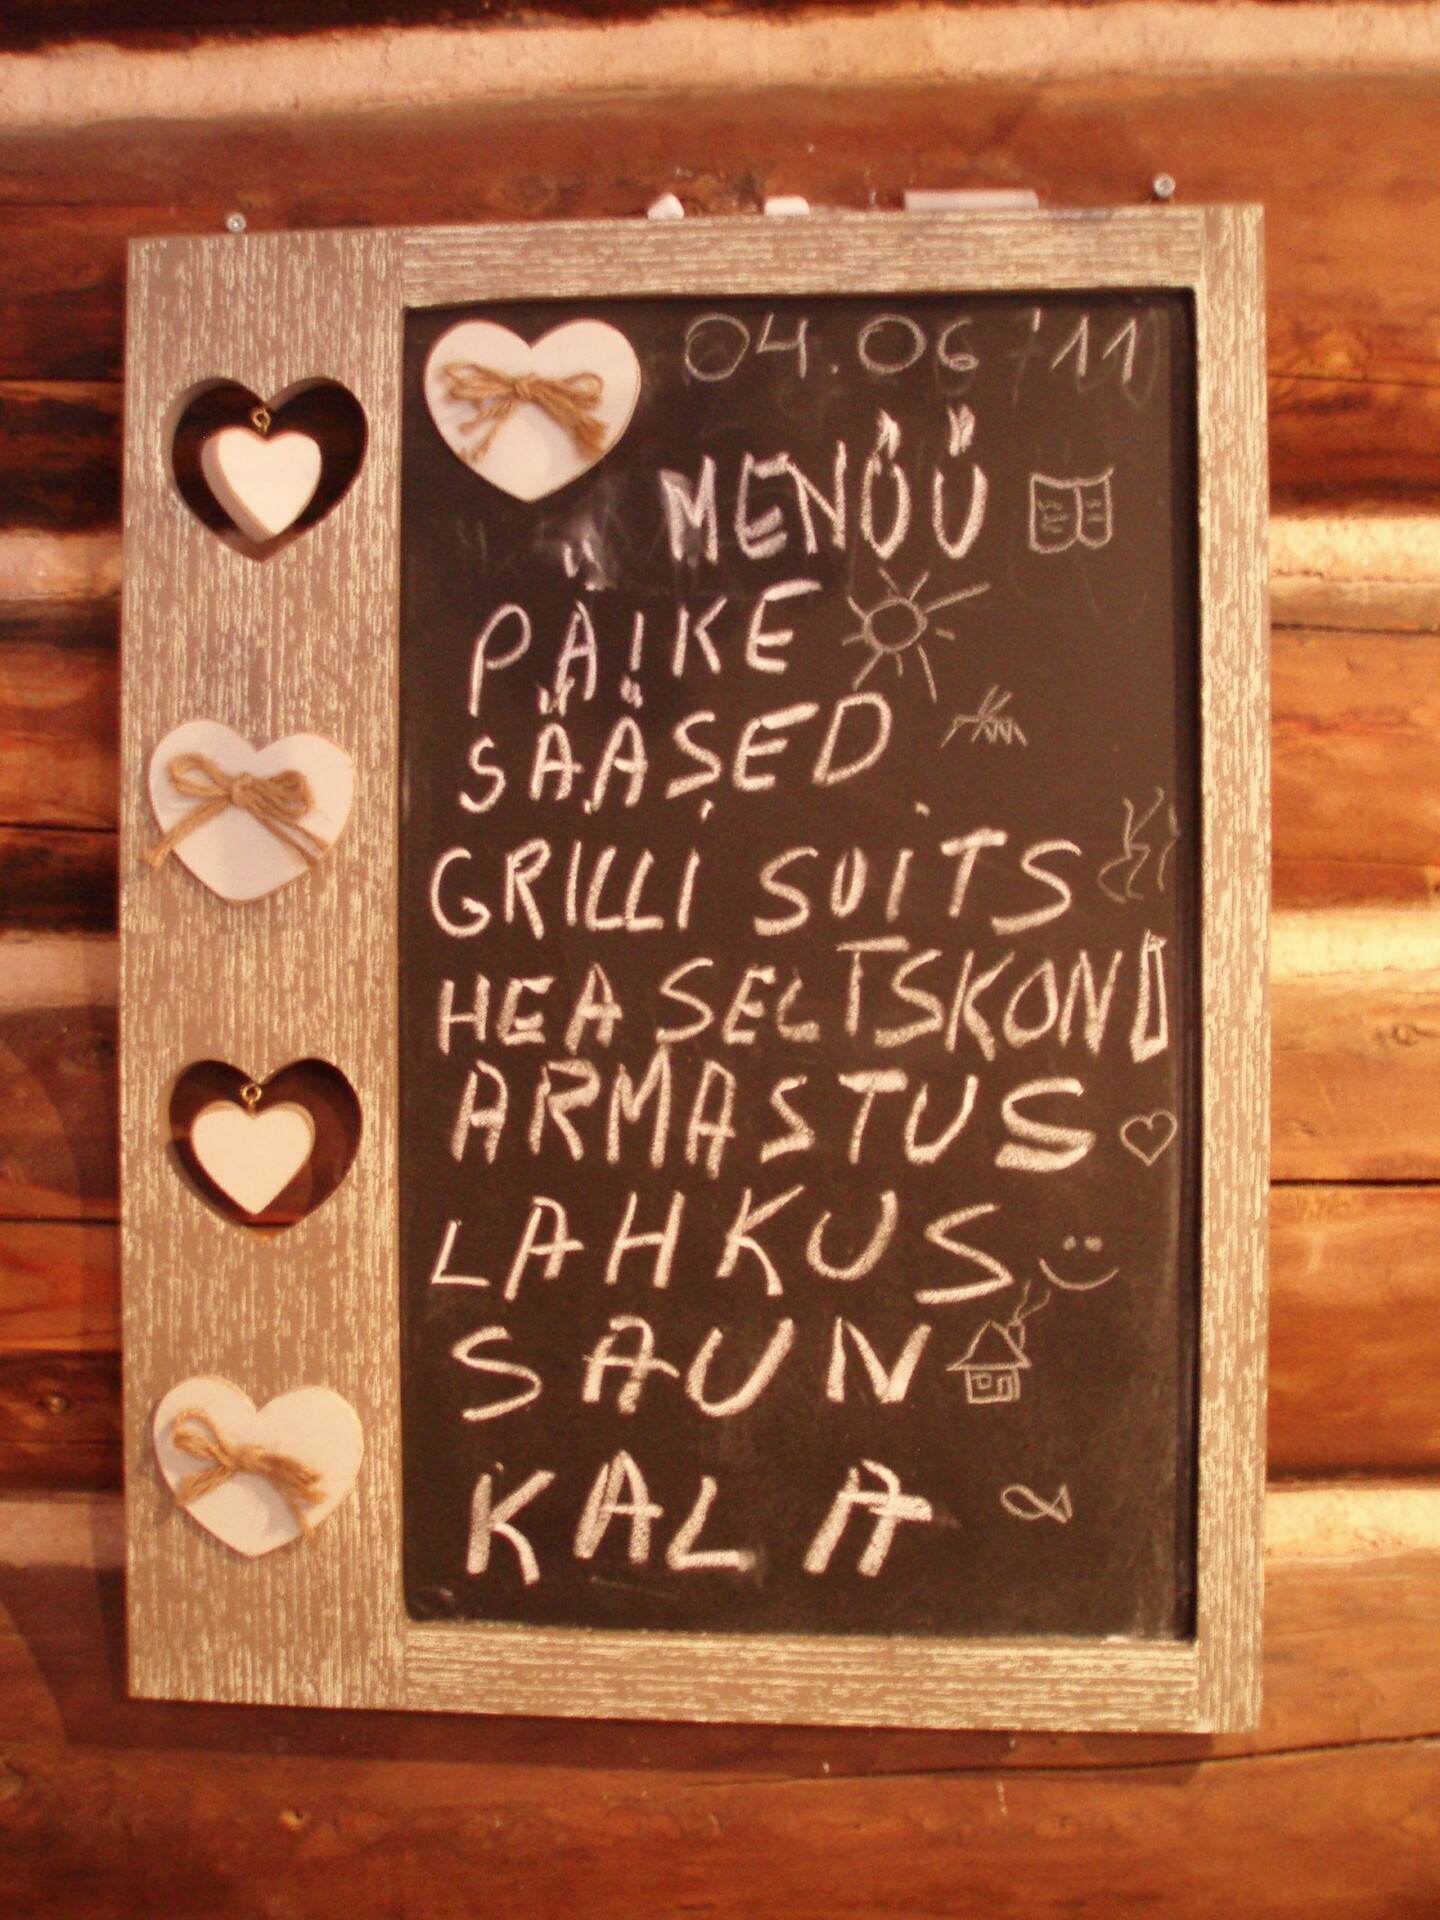 04.06 '11
MENÜÜ
PÄIKE
SÄÄSED
GRILLI SUITS
HEA SELTSKOND
ARMASTUS
LAHKUS
SAUN
KALA